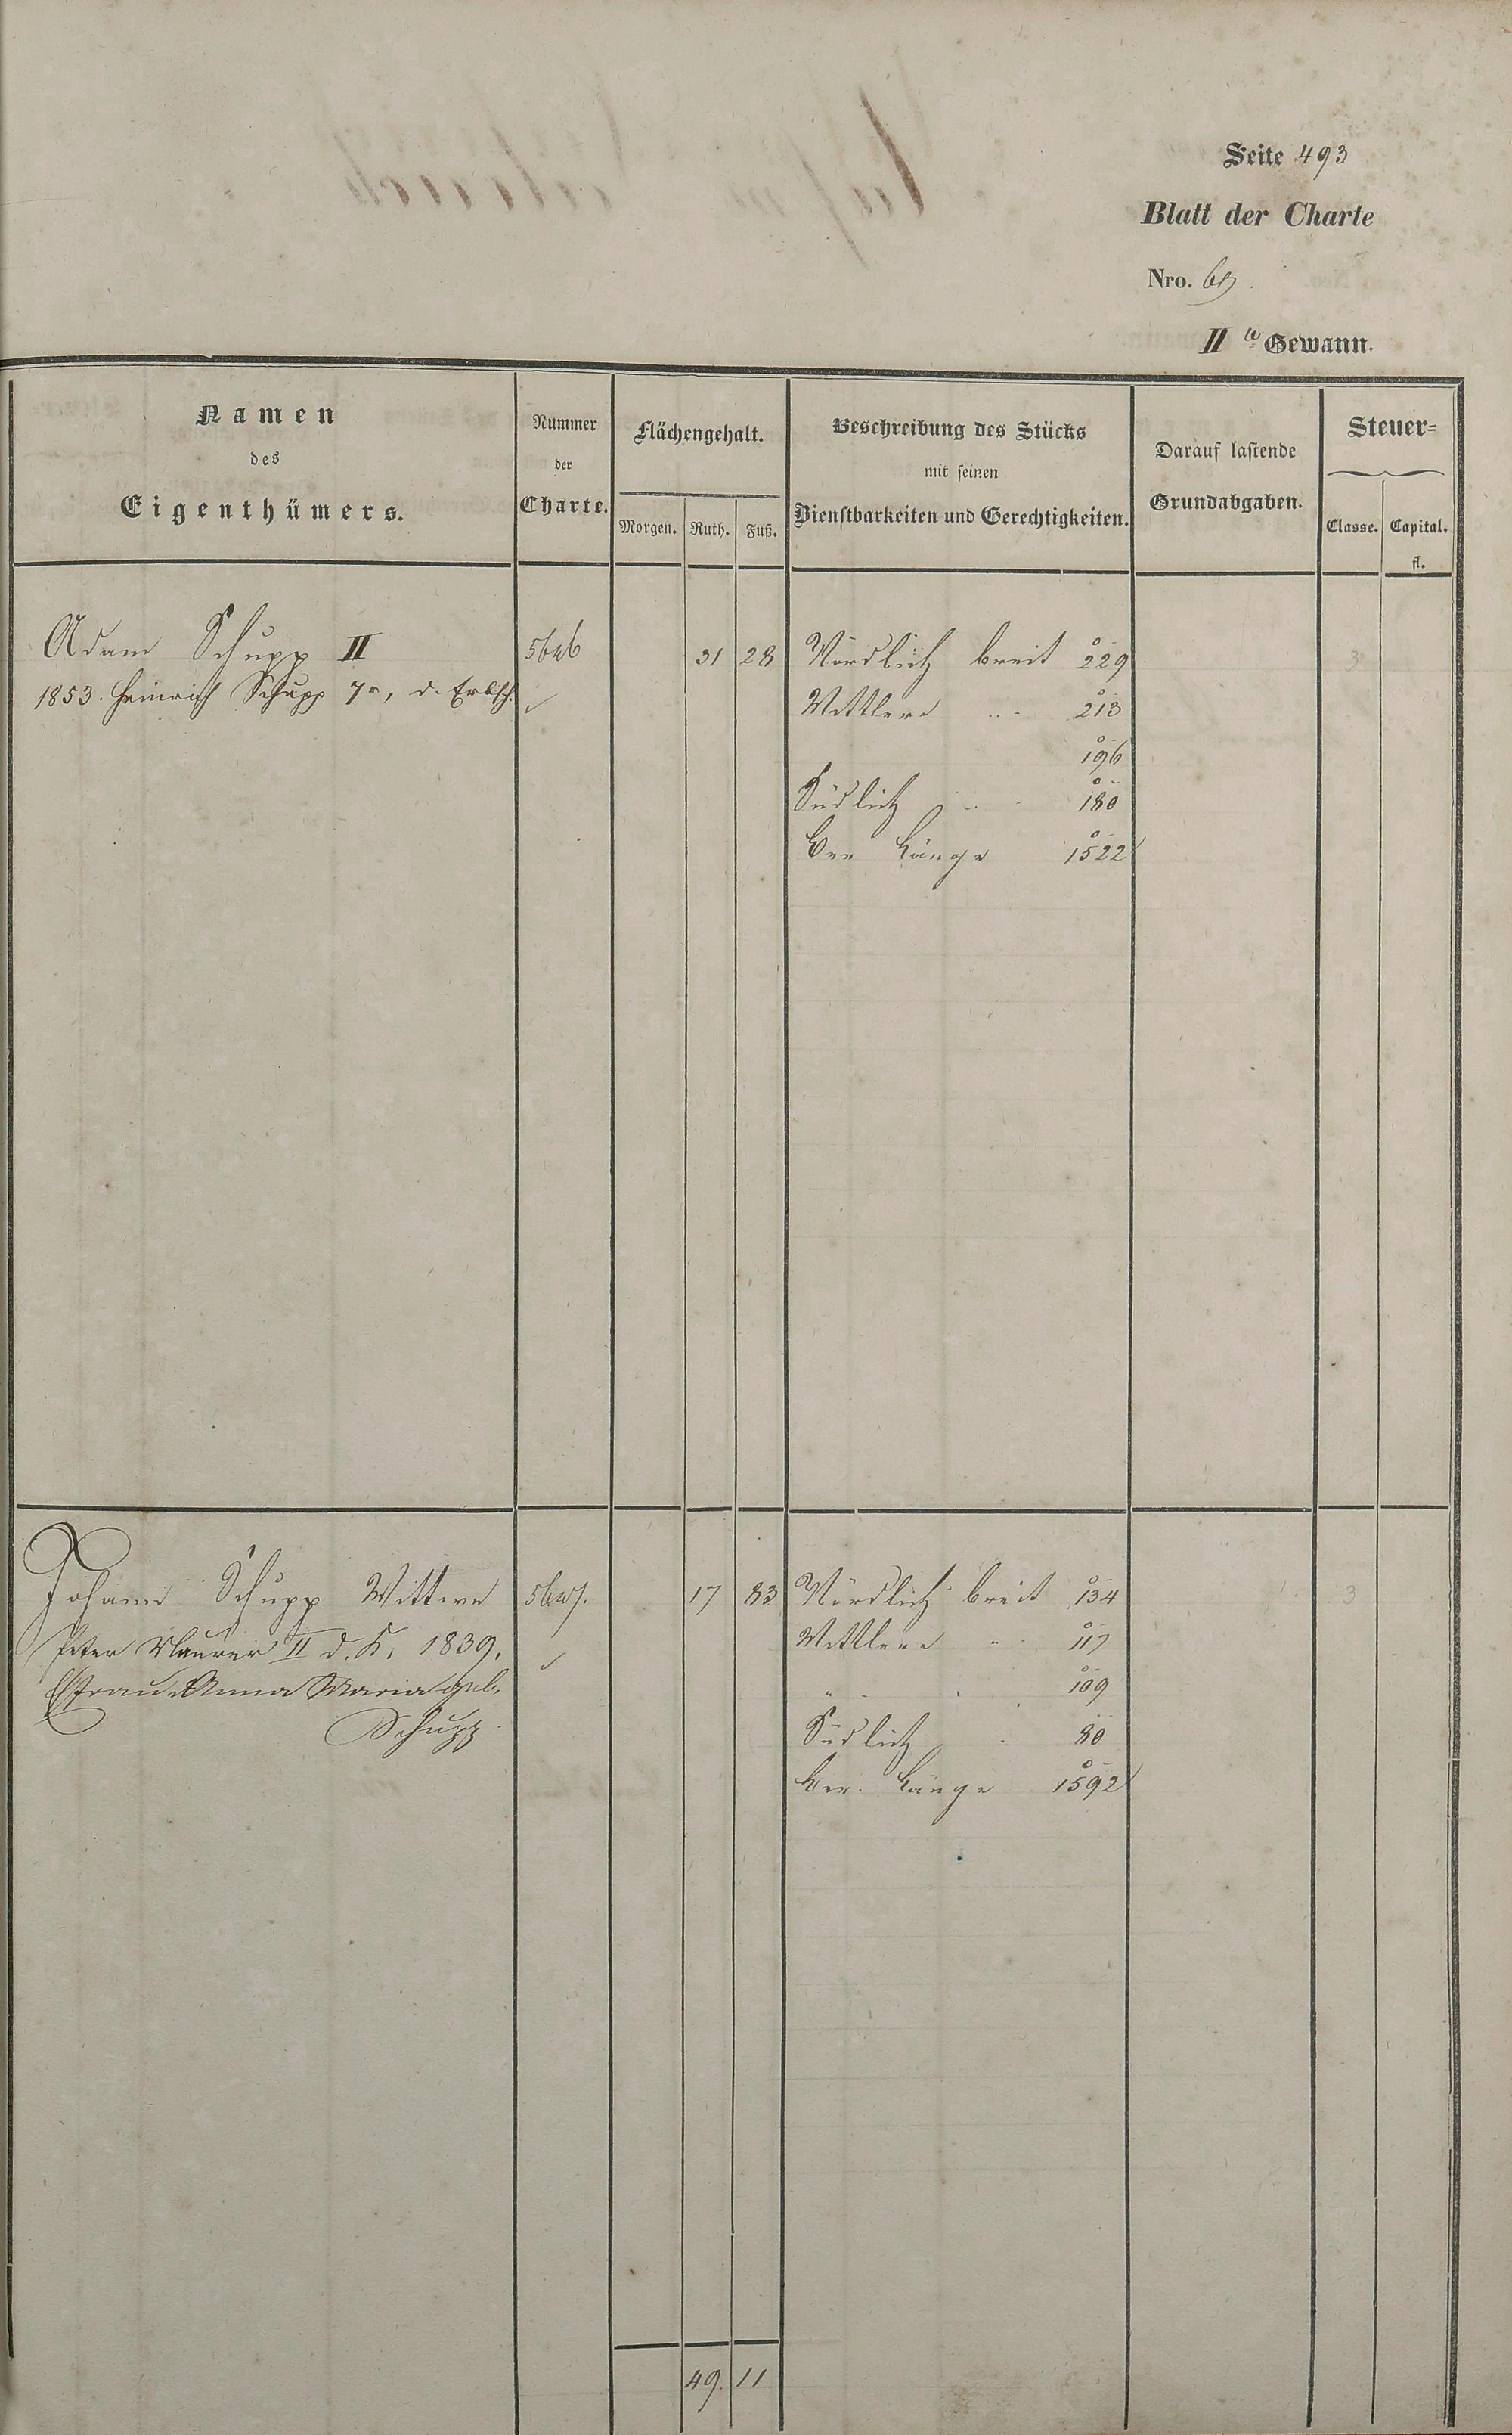 Seite 493
Blatt der Charte
Nro. 69.
II te Gewann.
Namen
des
Eigenthümers.
Nummer
der
Charte.
Flächengehalt.
Morgen. Ruth. Fuß.
Beschreibung des Stücks
mit seinen
Dienstbarkeiten und Gerechtigkeiten.
Darauf lastende
Grundabgaben.
Steuer=
Classe. Capital.
fl.
Adam Schupp II 31 28 Nördlich breit 229 3
1853. Heinrich Schupp 7r, d. Erbsch. Mittlere 213
196
Südlich 180
Länge 1522
Johann Schupp Wittwe 17 83 Nördlich breit 134 3
Peter Maurer II d. K. 1839. Mittlere 117
Efrau Anna Maria geb. 109
Schupp Südlich 80
Länge 1592
49. 11